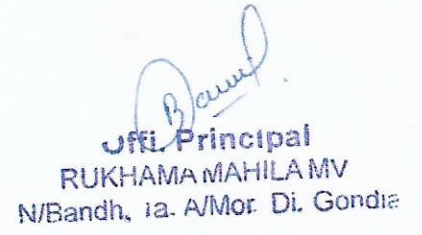 Offi. Principal
RUKHAMA MAHILA MV
N/Bandh, Ta. A/Mor. Di. Gondia